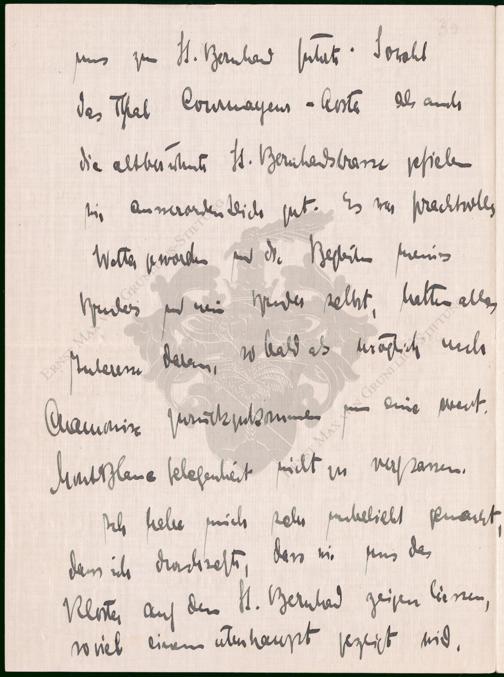 39
uns zu St. Bernhard führte. Sowohl
das Thal Courmayeur - Aosta als auch
die altberühmte St. Bernhardstrasse gefielen
mir ausserordentlich gut. Es war prachtvolles
Wetter geworden und die Begleiter meines
Bruders und mein Bruder selbst, hatten alles
Interesse daran, so bald als möglich nach
Chamonix zurückzukommen um eine event.
Mont Blanc Gelegenheit nicht zu verpassen.
Ich habe mich sehr unbeliebt gemacht,
dass ich durchsetzte, dass wir uns das
Kloster auf dem St. Bernhard zeigen liessen,
soviel einem überhaupt gezeigt wird.
ERNST MAX VON GRUNELIUS-STIFTUNG
ERNST MAX VON GRUNELIUS-STIFTUNG